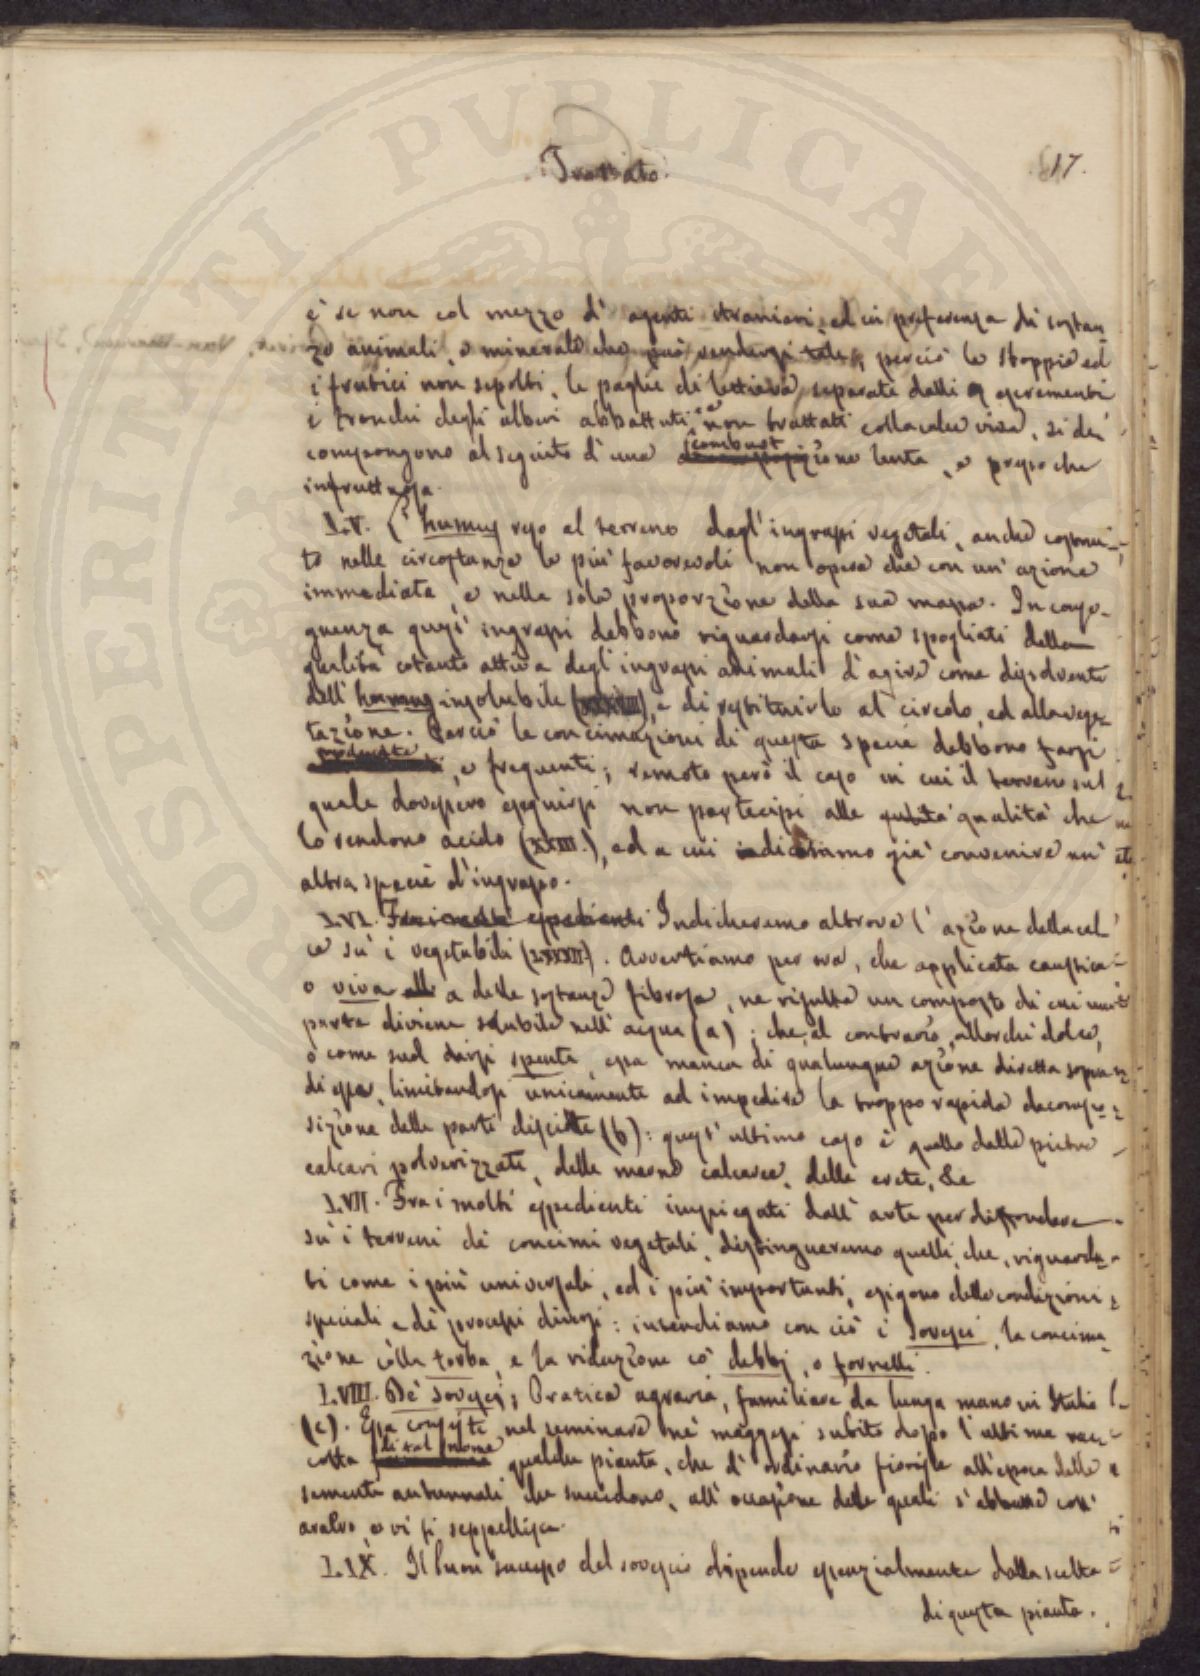 PROSPERITATI PUBLICAE
Trattato.
17.
è se non col mezzo di agenti stranieri, ed in preferenza di sostan
ze animali, o minerali che può rendersi tale, perciò le stoppie ed
i frutici non sepolti, le paglie di lettiera separate dalli escrementi
e tronchi degli alberi abbattuti, e non trattati colla calce viva, si de
compongono al seguito d'una combust ione lenta, e presso che
infruttuosa.
LV. L'humus reso al terreno dagl'ingrassi vegetali, anche costitui
to nelle circostanze le più favorevoli non opera che con un'azione
immediata, e nella sola proporzione della sua massa. In conse-
guenza quest'ingrassi debbono riguardarsi come spogliati della
qualità cotanto attiva degl'ingrassi animali d'agire come dissolvente
dell'humus insolubile e di restituirlo al circolo, ed alla vege-
tazione. Perciò le concimazioni di questa specie debbono farsi
moderate, e frequenti; remoto però il caso in cui il terreno sul
quale dovessero eseguirsi non partecipi alle qualità che
lo rendono acido (XXIII.), ed a cui indicammo già convenire un'
altra specie d'ingrasso.
LVI. Fra i molti espedienti Indicheremo altrove l'azione della cal
ce su i vegetabili (LXXXII). Avvertiamo per ora, che applicata caustica
o viva alle a delle sostanze fibrose, ne risulta un composto di cui una
parte diviene solubile nell'acqua (a); che, al contrario, allorchè dolce,
o come suol dirsi spenta, essa manca di qualunque azione diretta sopra
di esse, limitandosi unicamente ad impedire la troppo rapida decompo=
sizione delle parti disciolte (b): quest'ultimo caso è quello delle pietre
calcari polverizzate, delle marne calcaree, delle crete, &c
LVII. Fra i molti espedienti impiegati dall'arte per diffondere
su i terreni de' concimi vegetali, distingueremo quelli, che, riguarda-
ti come i più universali, ed i più importanti, esigono delle condizioni
speciali e de' processi diversi: intendiamo con ciò i sovesci, la concima
zione colla torba, e la riduzione co' debbj, o fornelli.
LVIII. De' sovesci; Pratica agraria, familiare da lunga mano in Italia
(c). Essa consiste nel seminare ne' maggesi subito dopo l'ultima rac
colta di tal nome qualche pianta, che d'ordinario fiorisce all'epoca delle
sementi autunnali che succedono, all'occasione delle quali s'abbatte coll'
aratro, e vi si seppellisce.
LIX. Il buon successo del sovescio dipende essenzialmente dalla scelta
di questa pianta.